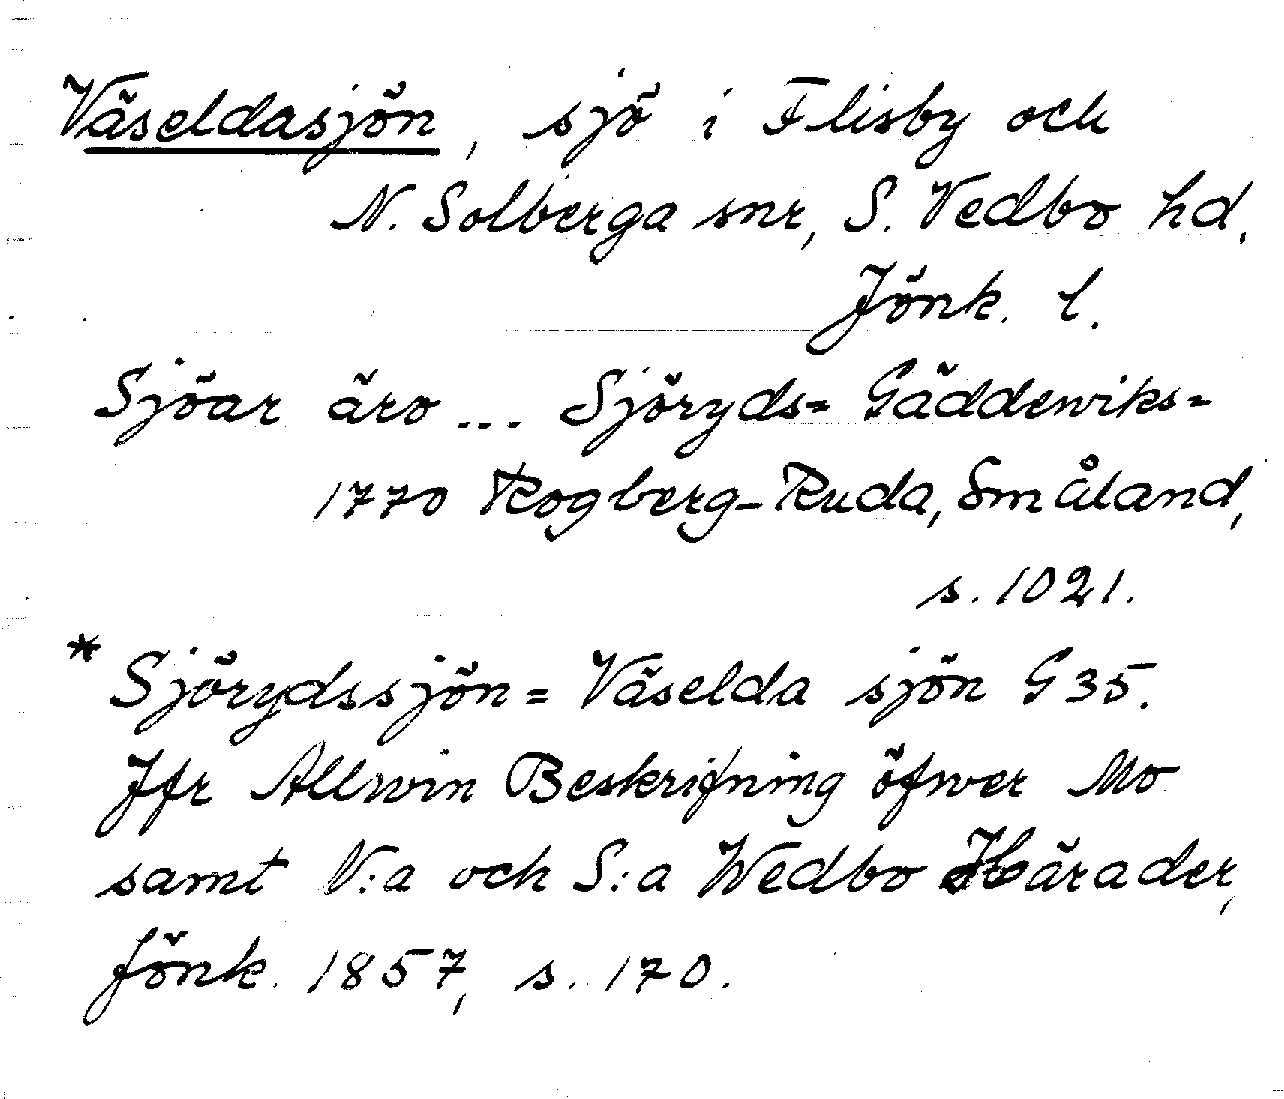 Väseldasjön, sjö i Flisby och
N. Solberga snr, S. Vedbo hd.
Jönk. l.
Sjöar äro ... Sjöryds= Gäddewiks=
1770 Rogberg-Ruda, Småland,
s. 1021.
* Sjörydssjön = Väselda sjön G 35.
Jfr Allwin Beskrifning öfwer Mo
samt N:a och S:a Wedbo Härader,
Jönk. 1857, s. 170.